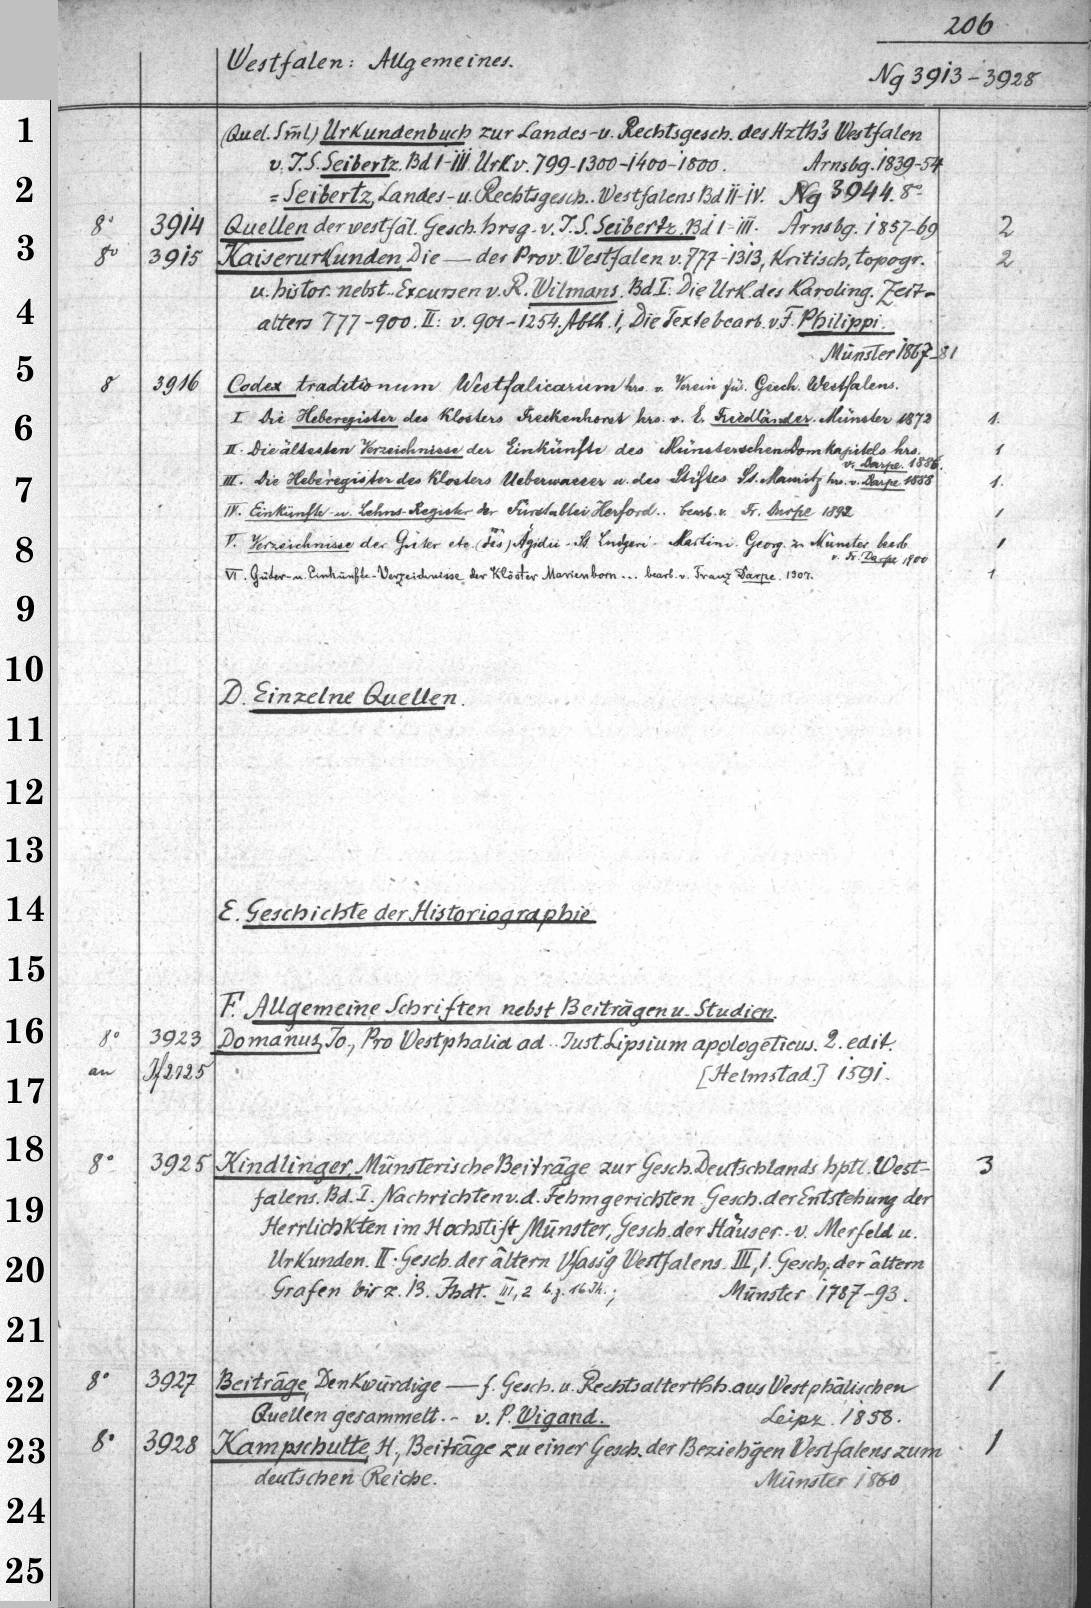 206
Westfalen: Allgemeines.
Ng 3913-3928
1
(Quel. Sml.) Urkundenbuch zur Landes- u. Rechtsgesch. des Hzth's Westfalen
v. J. S. Seibertz. Bd I-III Urk v. 799-1300-1400-1800. Arnsbg. 1839-54
2
= Seibertz, Landes- u. Rechtsgesch. Westfalens Bd II-IV. Ng 3944. 8°
8° 3914 Quellen der westfäl. Gesch. hrsg. v. J. S. Seibertz. Bd I-III. Arnsbg. 1857-69 2
3
8° 3915 Kaiserurkunden, Die — der Prov. Westfalen v. 777-1313, Kritisch, topogr. 2
u. histor. nebst.. Excursen v. R. Wilmans. Bd I. Die Urk. des Karoling. Zeit-
4
alters 777-900. II: v. 901-1254. Abth. 1, Die Texte bearb. v. F. Philippi.
Münster 1867-81
5
8 3916 Codex traditionum Westfalicarum hrs. v. Verein für Gesch. Westfalens.
6
I Die Heberegister des Klosters Freckenhorst hrs. v. E. Friedländer. Münster 1872 1.
II. Die ältesten Verzeichnisse der Einkünfte des Münsterschen Domkapitels hrs. 1
v. Darpe. 1886.
7
III. Die Heberegister des Klosters Ueberwasser u. des Stiftes St. Mauritz hrs. v. Darpe 1888 1.
IV. Einkünfte- u. Lehns-Register der Fürstabtei Herford.. bearb. v. Fr. Darpe 1892 1
8
V. Verzeichnisse der Güter etc. Ägidii - St. Ludgeri - Martini. Georg. zu Münster bearb. 1
v. Fr. Darpe 1900
VI. Güter- u. Einkünfte-Verzeichnisse der Klöster Marienborn... bearb. v. Franz Darpe. 1907. 1
9
10
D. Einzelne Quellen.
11
12
13
14
E. Geschichte der Historiographie
15
F. Allgemeine Schriften nebst Beiträgen u. Studien.
16
8° 3923 Domanus, Jo., Pro Westphalia ad Just. Lipsium apologeticus. 2. edit.
an 2125 [Helmstad.] 1591.
17
18
8° 3925 Kindlinger, Münsterische Beiträge zur Gesch. Deutschlands hptl. West- 3
19
falens. Bd. I. Nachrichten v. d. Fehmgerichten Gesch. der Entstehung der
Herrlichkten im Hochstift Münster, Gesch. der Häuser.. v. Merfeld u.
20
Urkunden. II. Gesch. der ältern Vfassg Westfalens. III, 1. Gesch. der ältern
Grafen bis z. 13. Jhdt. III, 2 b. z. 16 Jh.; Münster 1787-93.
21
22
8° 3927 Beiträge, Denkwürdige — f. Gesch. u. Rechtsalterthh. aus Westphälischen 1
Quellen gesammelt.. v. P. Wigand. Leipz. 1858.
23
8° 3928 Kampschulte, H., Beiträge zu einer Gesch. der Beziehgen Westfalens zum 1
deutschen Reiche. Münster 1860
24
25